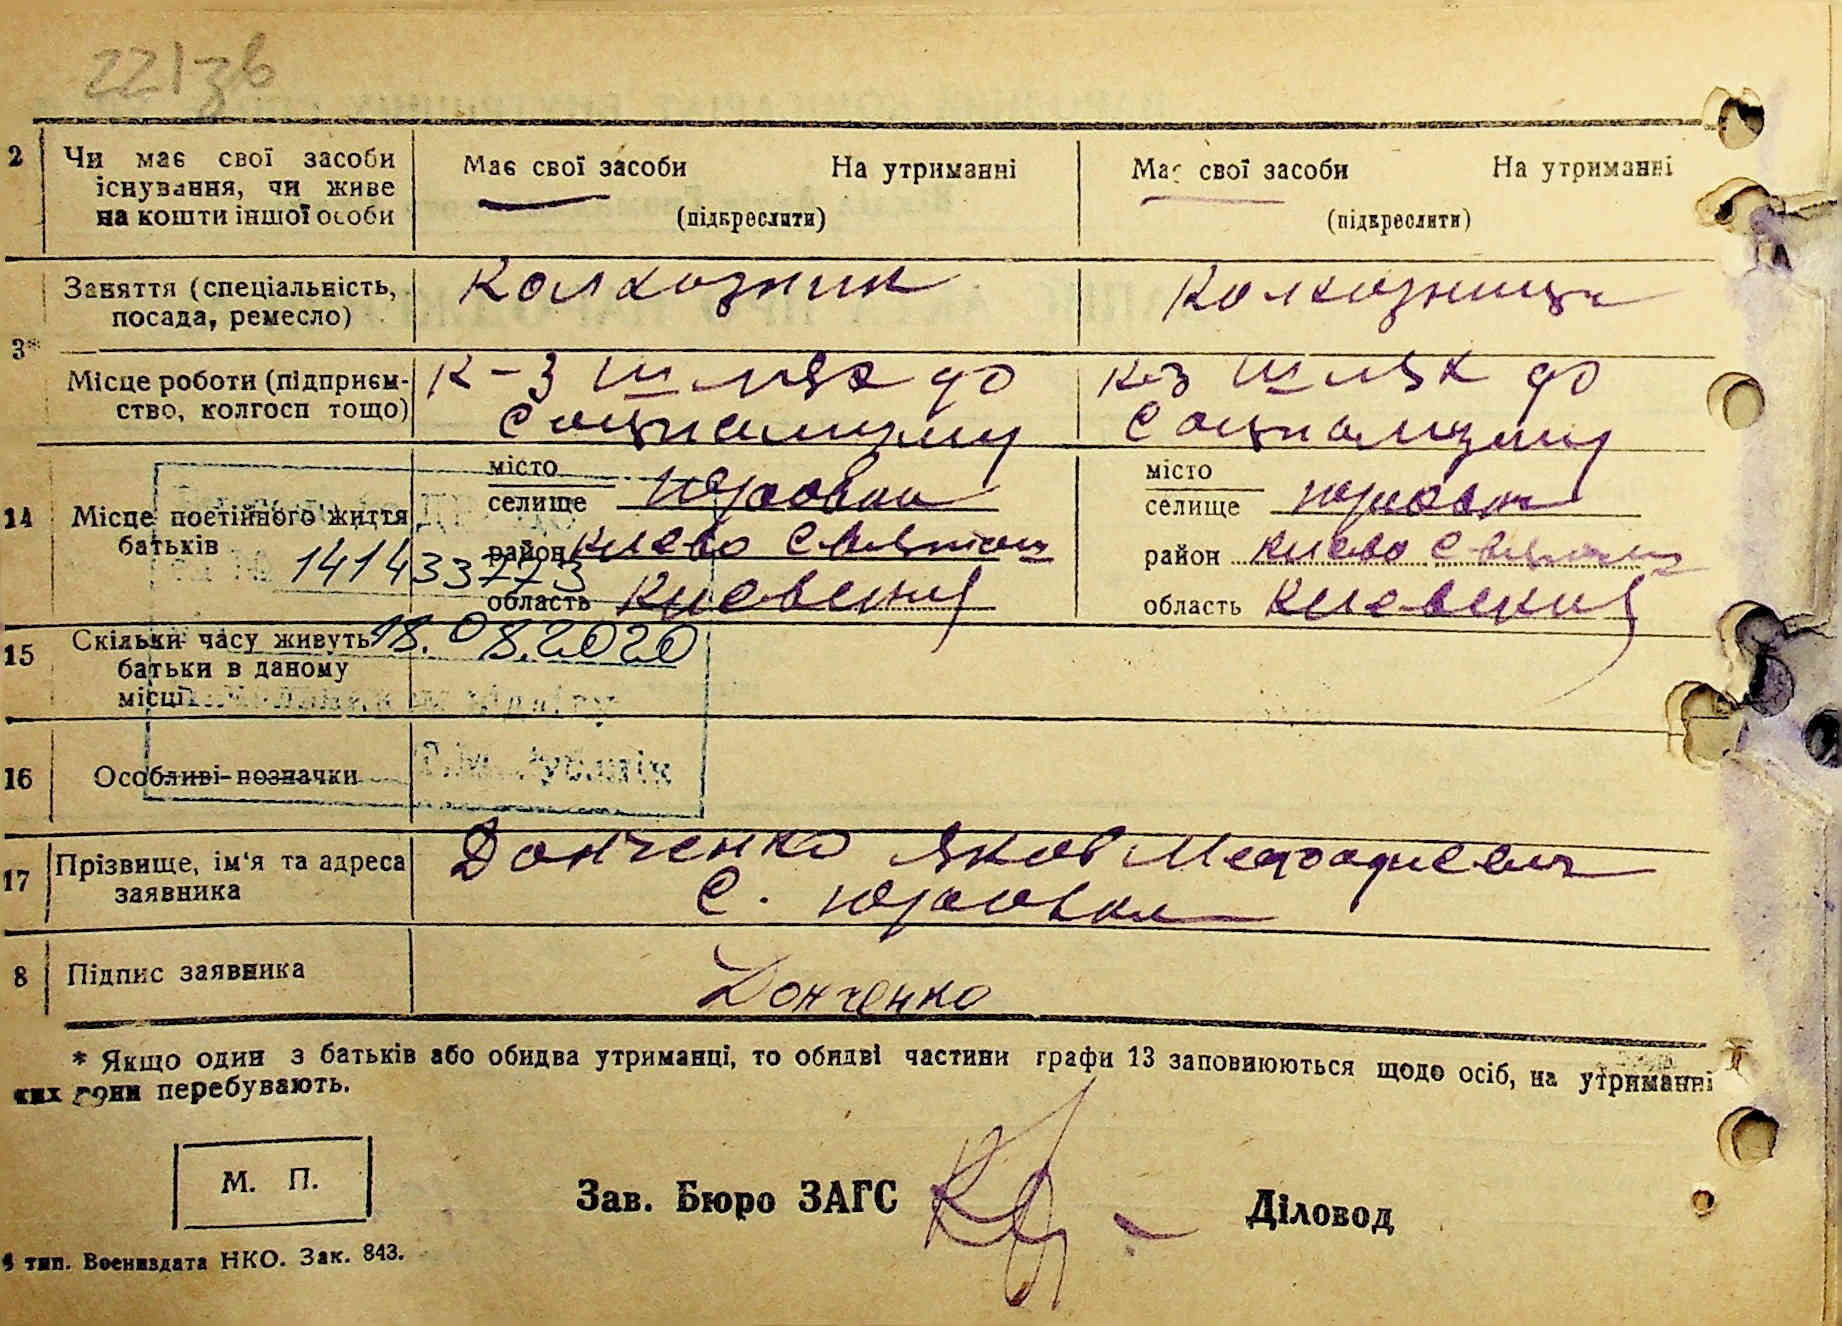 221зв
2 Чи має свої засоби існування, чи живе на кошти іншої особи
Має свої засоби На утриманні
(підкреслити)
Має свої засоби На утриманні
(підкреслити)
3*
Заняття (спеціальність, посада, ремесло)
Колхозник
Колхозница
Місце роботи (підприємство, колгосп тощо)
К-з Шлях до
Социализму
К-з Шлях до
Социализму
14 Місце постійного життя батьків
місто
селище Юровка
район Киево Святош
область Киевский
місто
селище Юровка
район Киево Святош
область Киевский
1414 33773
18.08.2020
15 Скільки часу живуть батьки в даному місці
16 Особливі позначки
17 Прізвище, ім'я та адреса заявника
Донченко Яков Мефодиевич
с. Юровка
8 Підпис заявника
Донченко
* Якщо один з батьків або обидва утриманці, то обидві частини графи 13 заповнюються щодо осіб, на утриманні
ких вони перебувають.
М. П.
Зав. Бюро ЗАГС
Діловод
тип. Воениздата НКО. Зак. 843.